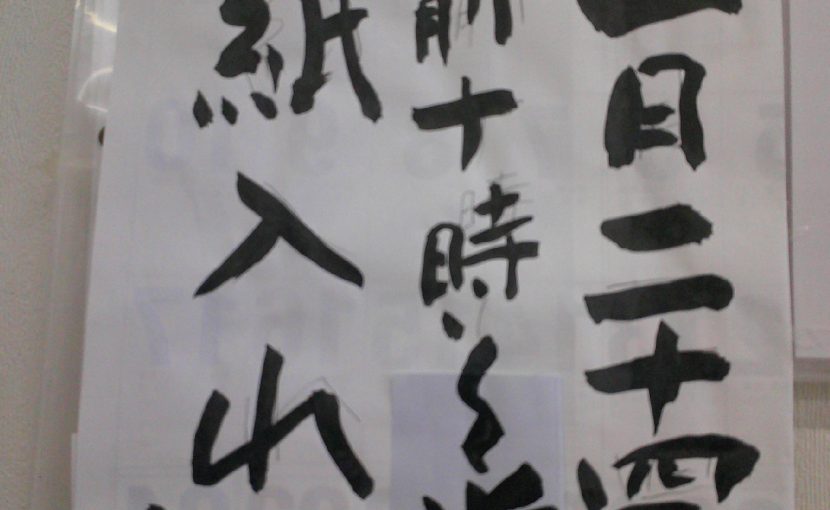 一日二十四
前十時〜
紙入れ